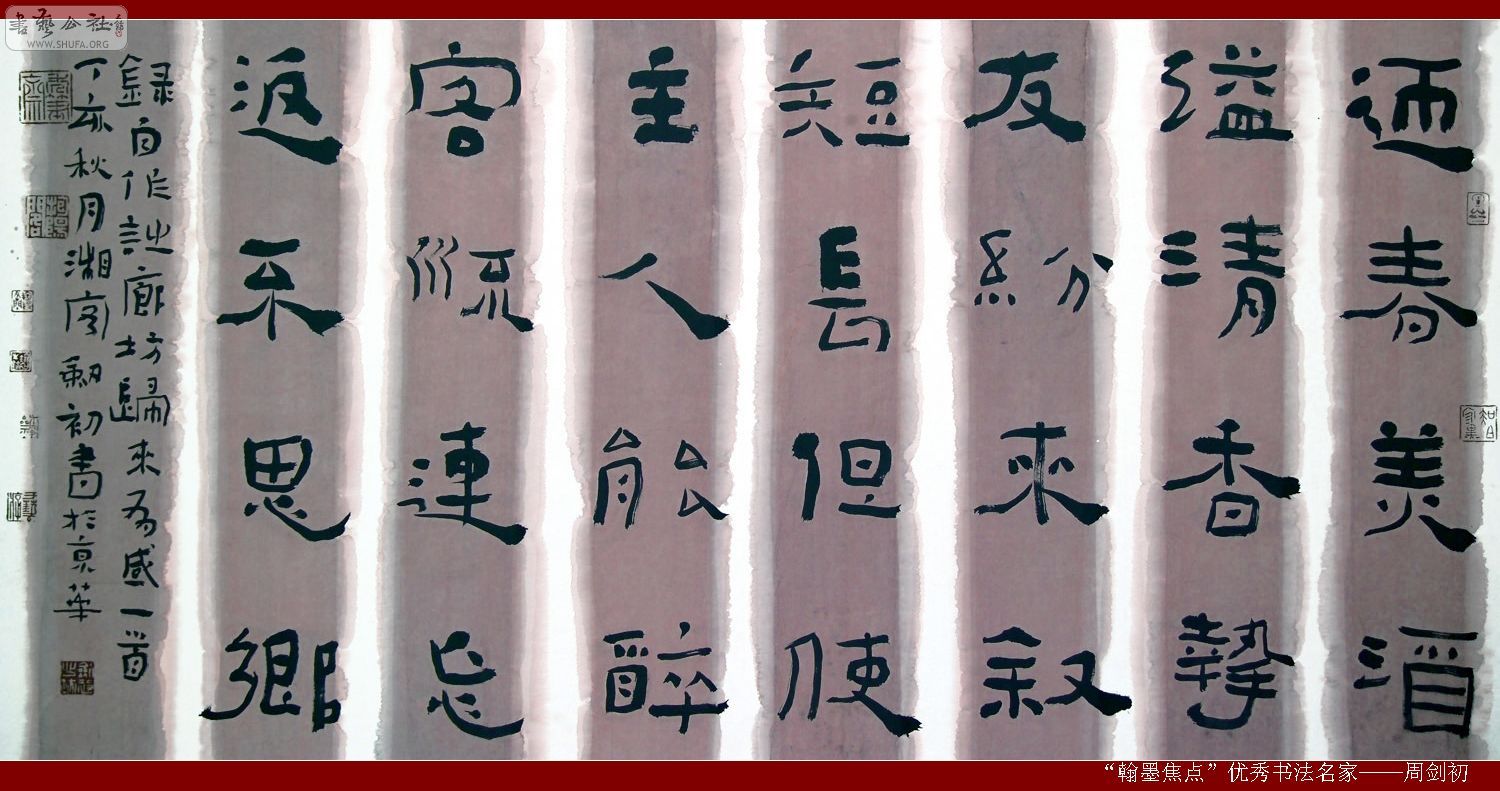 書藝公社
WWW.SHUFA.ORG
迺春美酒
溢清香摯
友紛來叙
短長但使
主人能醉
客流連忘
返不思鄉
錄自作詩廊坊歸來有感一首
丁亥秋月湘客劎初書於京華
“翰墨焦点”优秀书法名家——周剑初